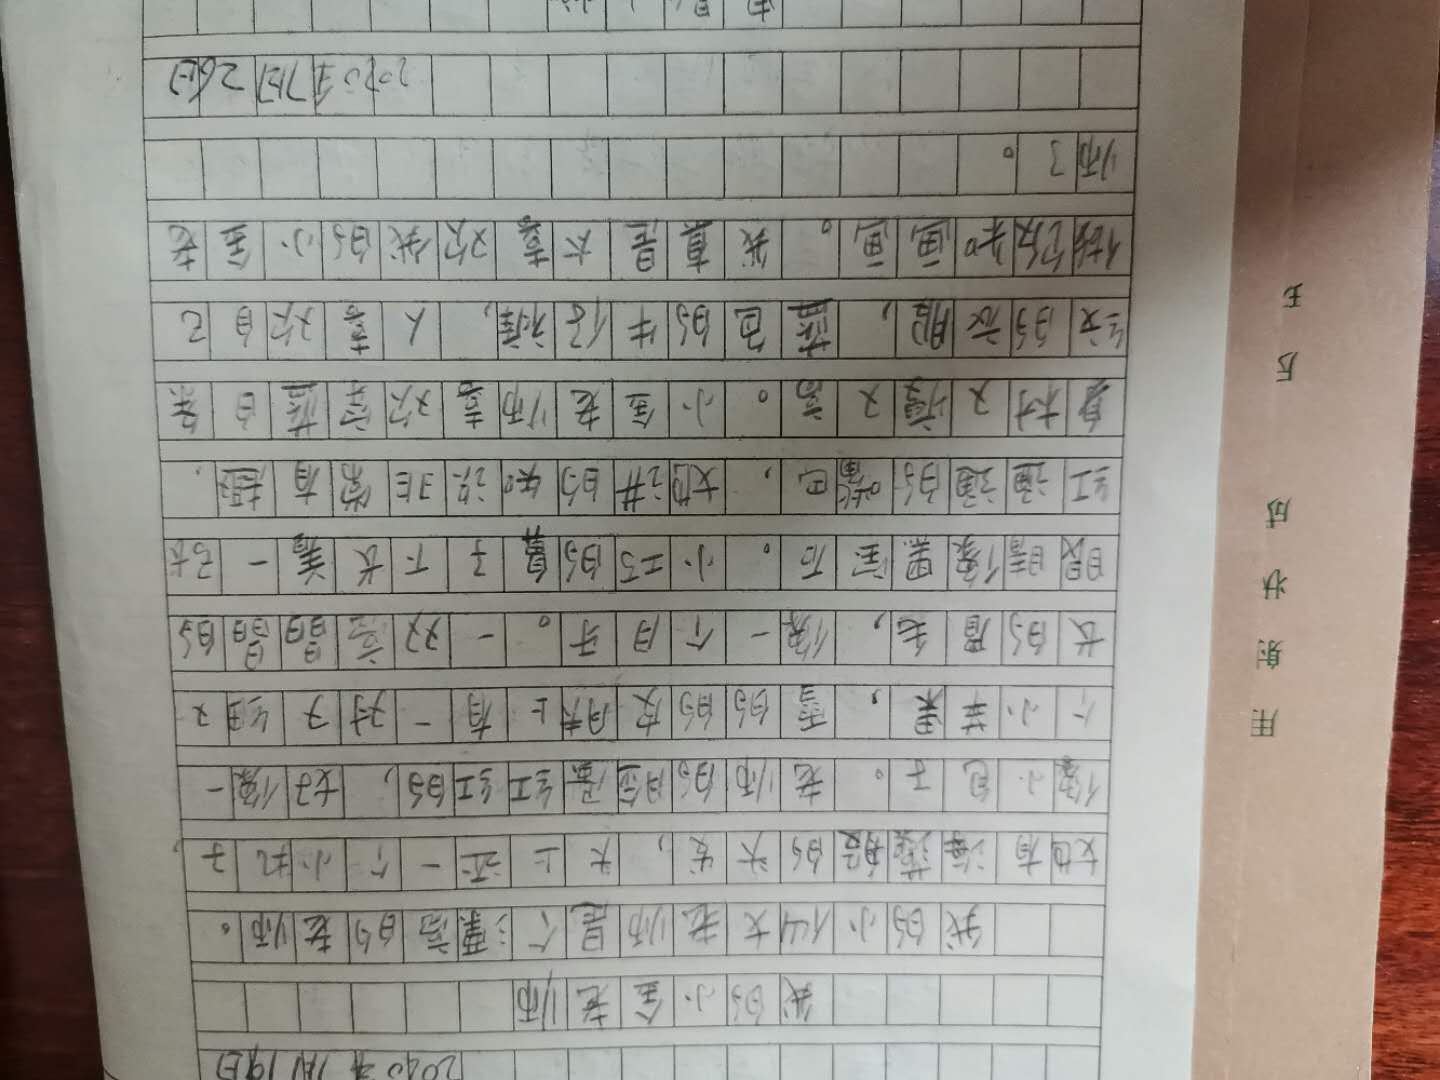 2020年7月19日
我的小金老师
我的小仙女老师是个漂亮的老师。
她有海藻般的头发，头上还一个小丸子，
像小包子。老师的脸蛋红红的，好像一
个小苹果，雪白的皮肤上有一对又细又
长的眉毛，像一个月牙。一双亮晶晶的
眼睛像黑宝石。小巧的鼻子下长着一张
红通通的嘴巴，她讲的知识非常有趣，
身材又瘦又高。小金老师喜欢穿蓝白条
纹的衣服，蓝色的牛仔裤，人喜欢自己
做饭和画画。我真是太喜欢我的小金老
师了。
2020年7月26日